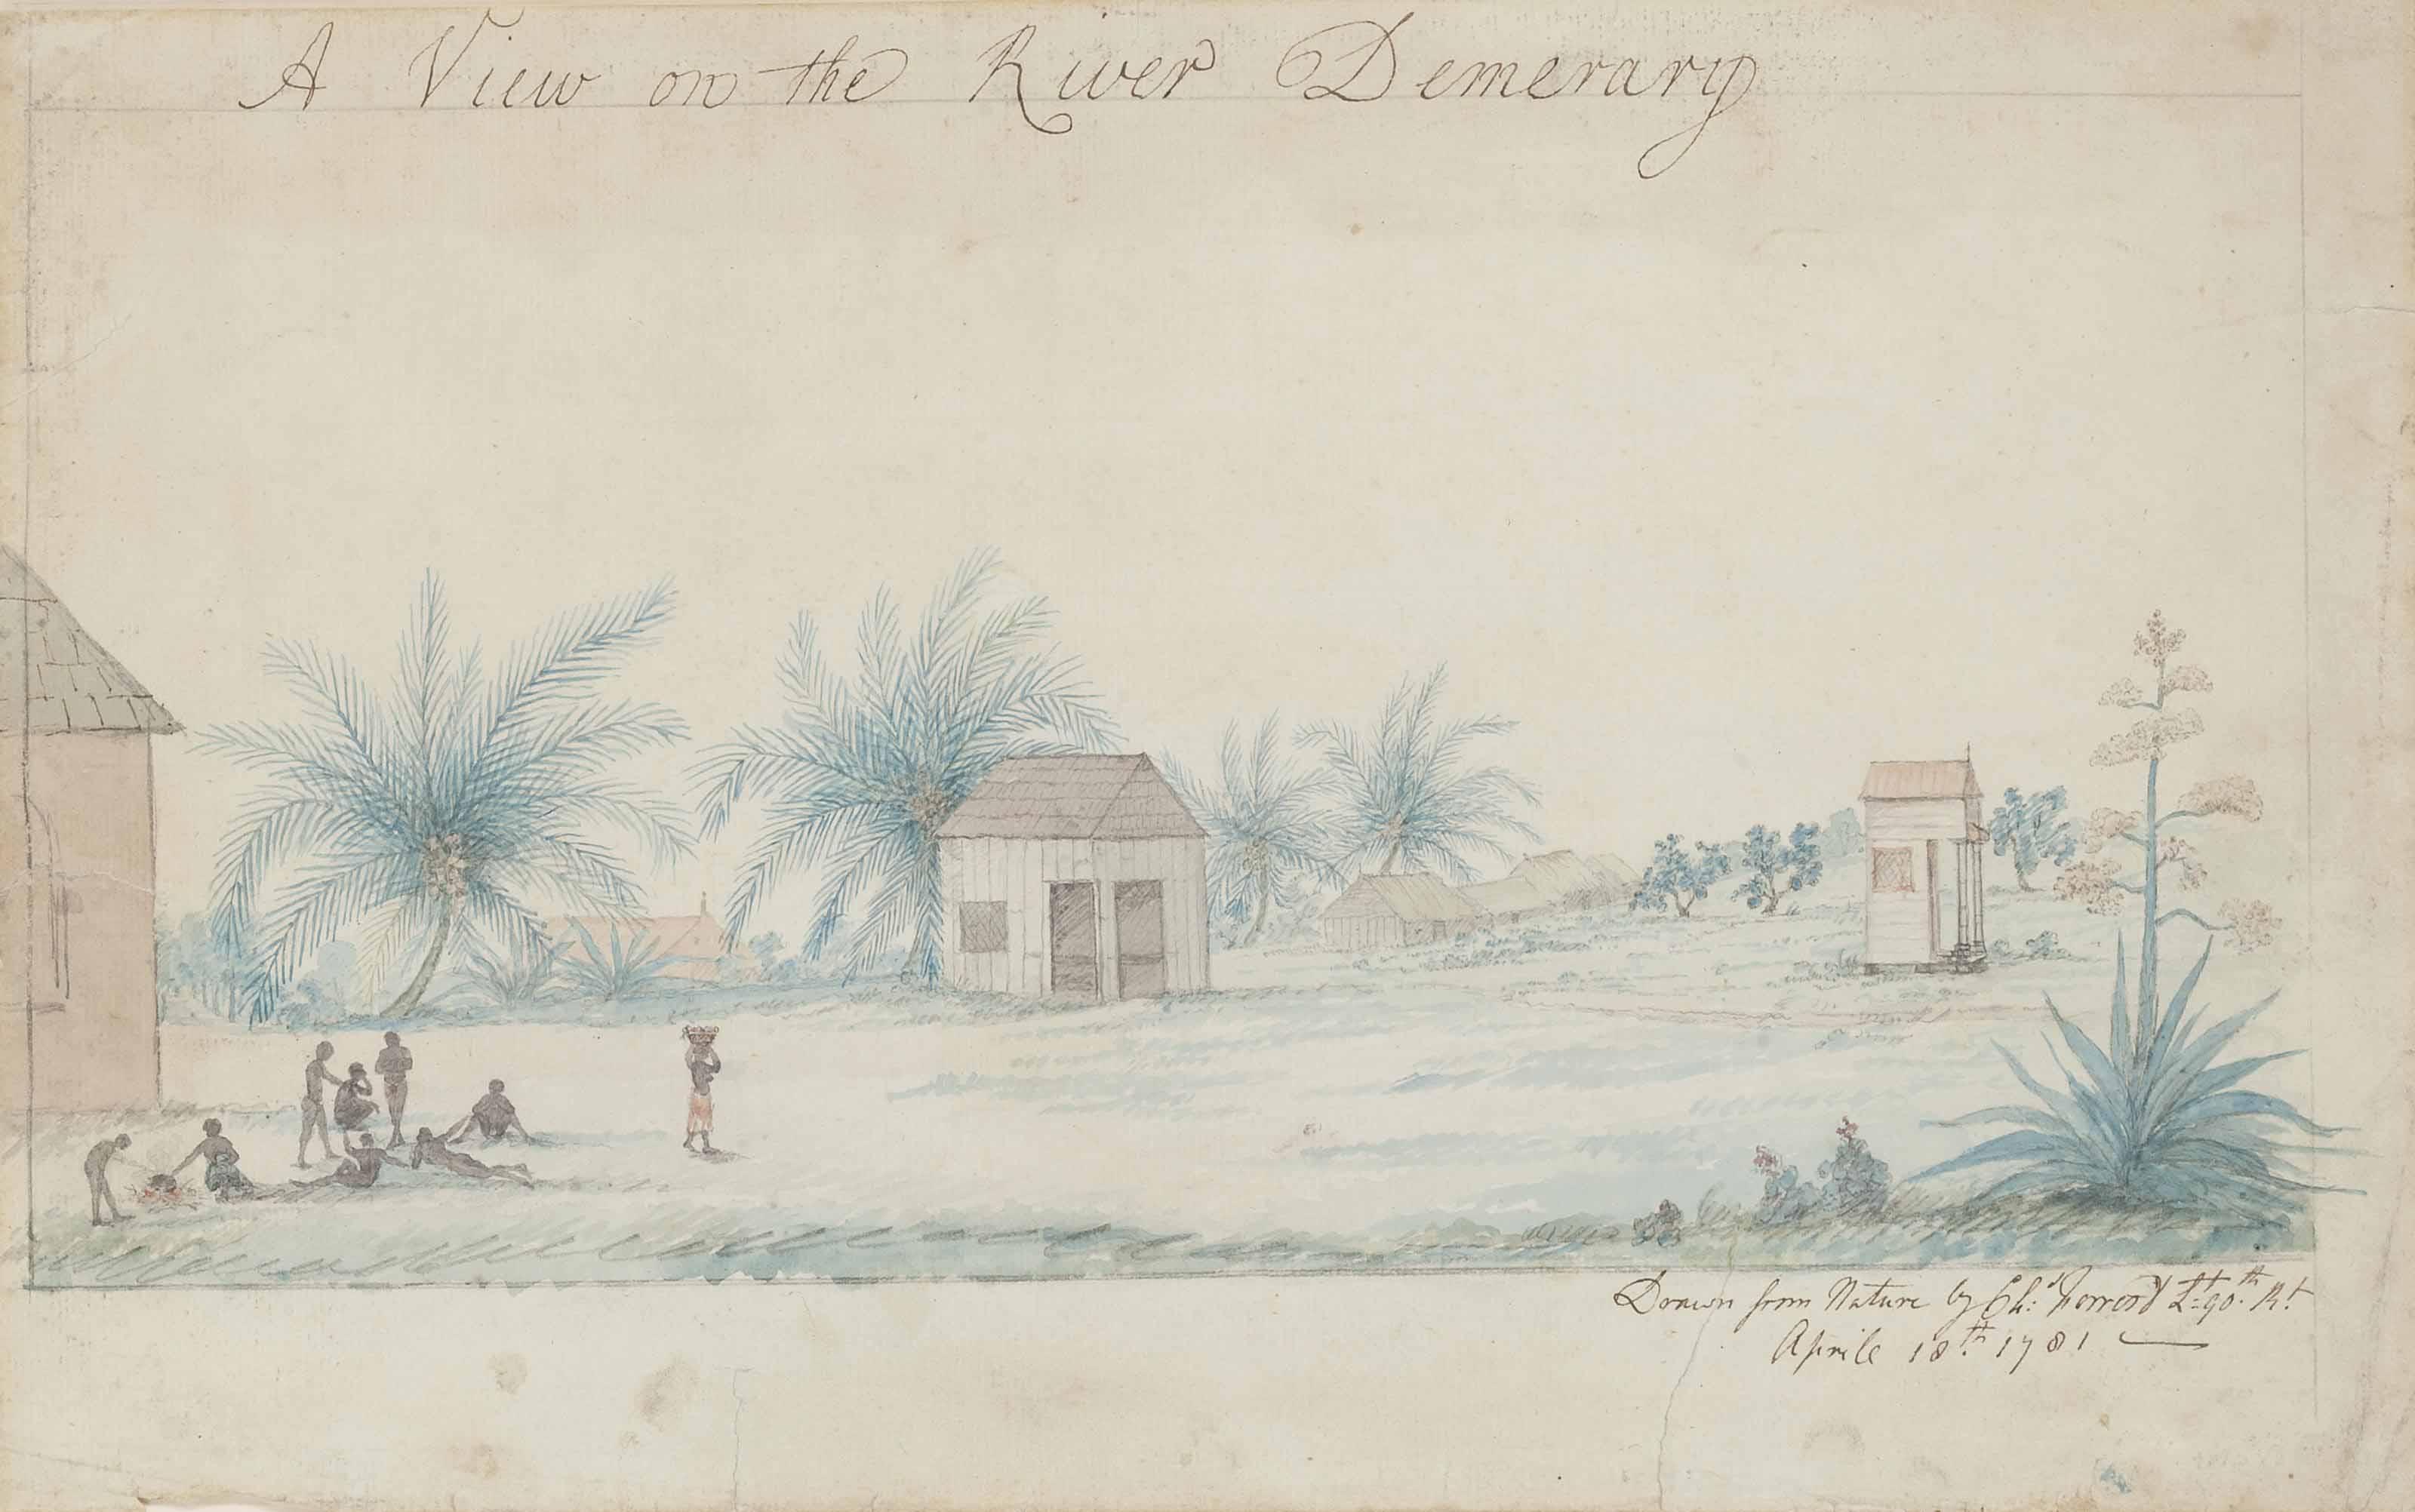 A View on the River Demerary
Drawn from Nature by Ch.s Forrest Lt 90.th Rt
Aprile 18.th 1781